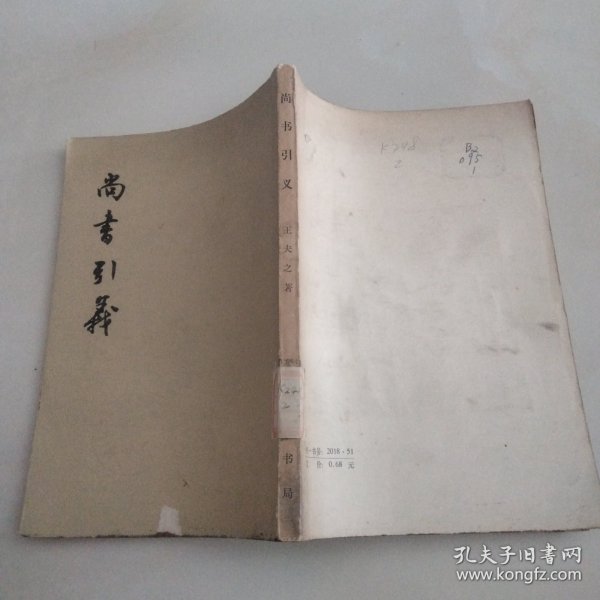 尚書引義
尚书引义
王夫之著
书局
K248
2
B2
095
1
书号: 2018·51
价: 0.68 元
孔夫子旧书网
www.kongfz.com